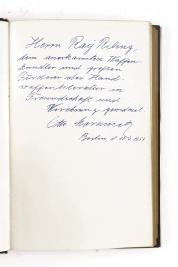 Herrn Ray Riling,
dem anerkannten Waffen-
kundler und großen
Förderer der Hand-
waffenliteratur in
Freundschaft und
Verehrung gewidmet.
Otto Morawietz
Berlin, d.